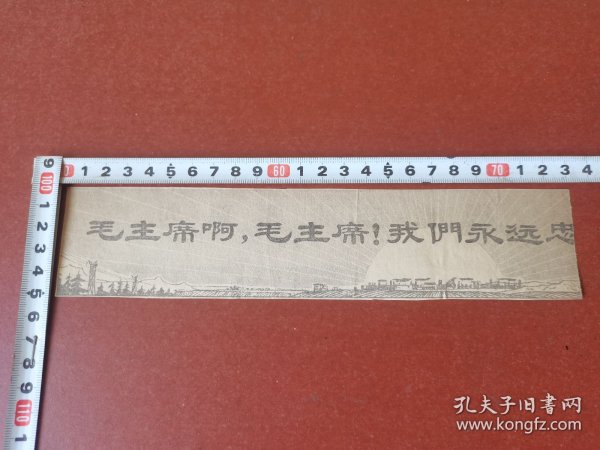 1 2 3 4 5 6 7 8 9 60 1 2 3 4 5 6 7 8 9 70 1 2 3 4
9 100 1 2 3 4 5 6 7 8 9 110 1
毛主席啊，毛主席！我們永远忠
孔夫子旧书网
www.kongfz.com